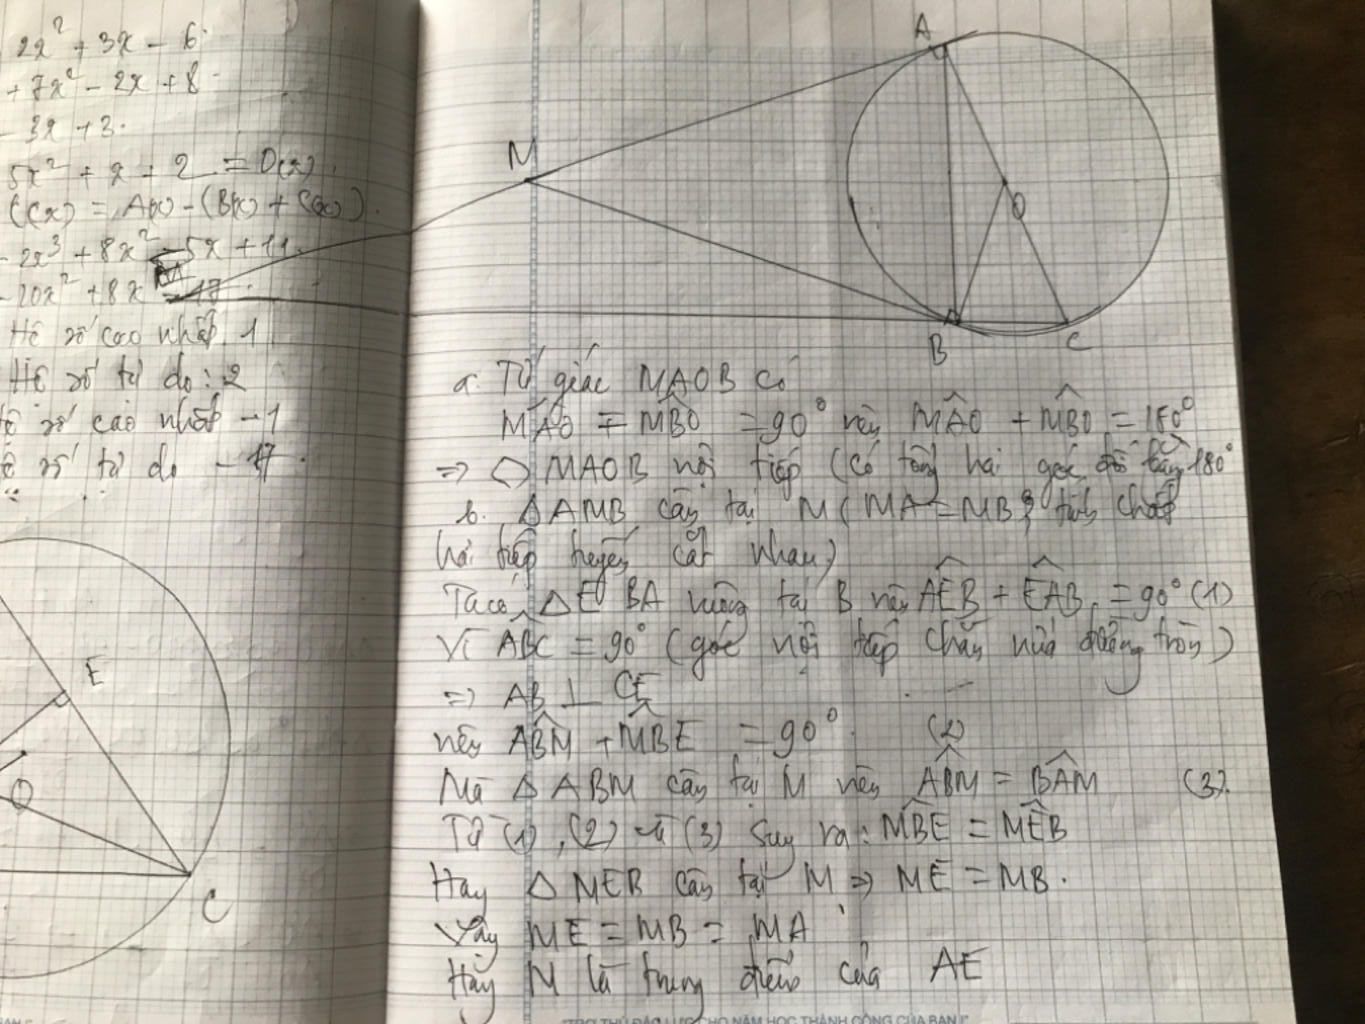 2x² + 3x - 6.
+ 7x² - 2x + 8.
- 3x + 3.
5x² + x + 2 = D(x).
C(x) = A(x) - (B(x) + C(x)).
- 2x³ + 8x² - 5x + 11.
- 20x² + 8x
Hệ số cao nhất 1
Hệ số tự do : 2
số cao nhất -1
số tự do -17.
E
O
C
A
M
O
B
C
a. Tứ giác MAOB có
MAO = MBO = 90° nên MAO + MBO = 180°
=> MAOB nội tiếp (có tổng hai góc đối bằng 180°
b. ΔAMB cân tại M (MA = MB; tính chất
hai tiếp tuyến cắt nhau)
Ta có, ΔEBA vuông tại B nên AEB + EAB = 90° (1)
Vì ABC = 90° (góc nội tiếp chắn nửa đường tròn)
=> AB ⊥ CE
nên ABM + MBE = 90°. (2)
Mà ΔABM cân tại M nên ABM = BAM (3).
Từ (1), (2) và (3) suy ra: MBE = MEB
Hay ΔMEB cân tại M => ME = MB.
Vậy ME = MB = MA
Hay M là trung điểm của AE